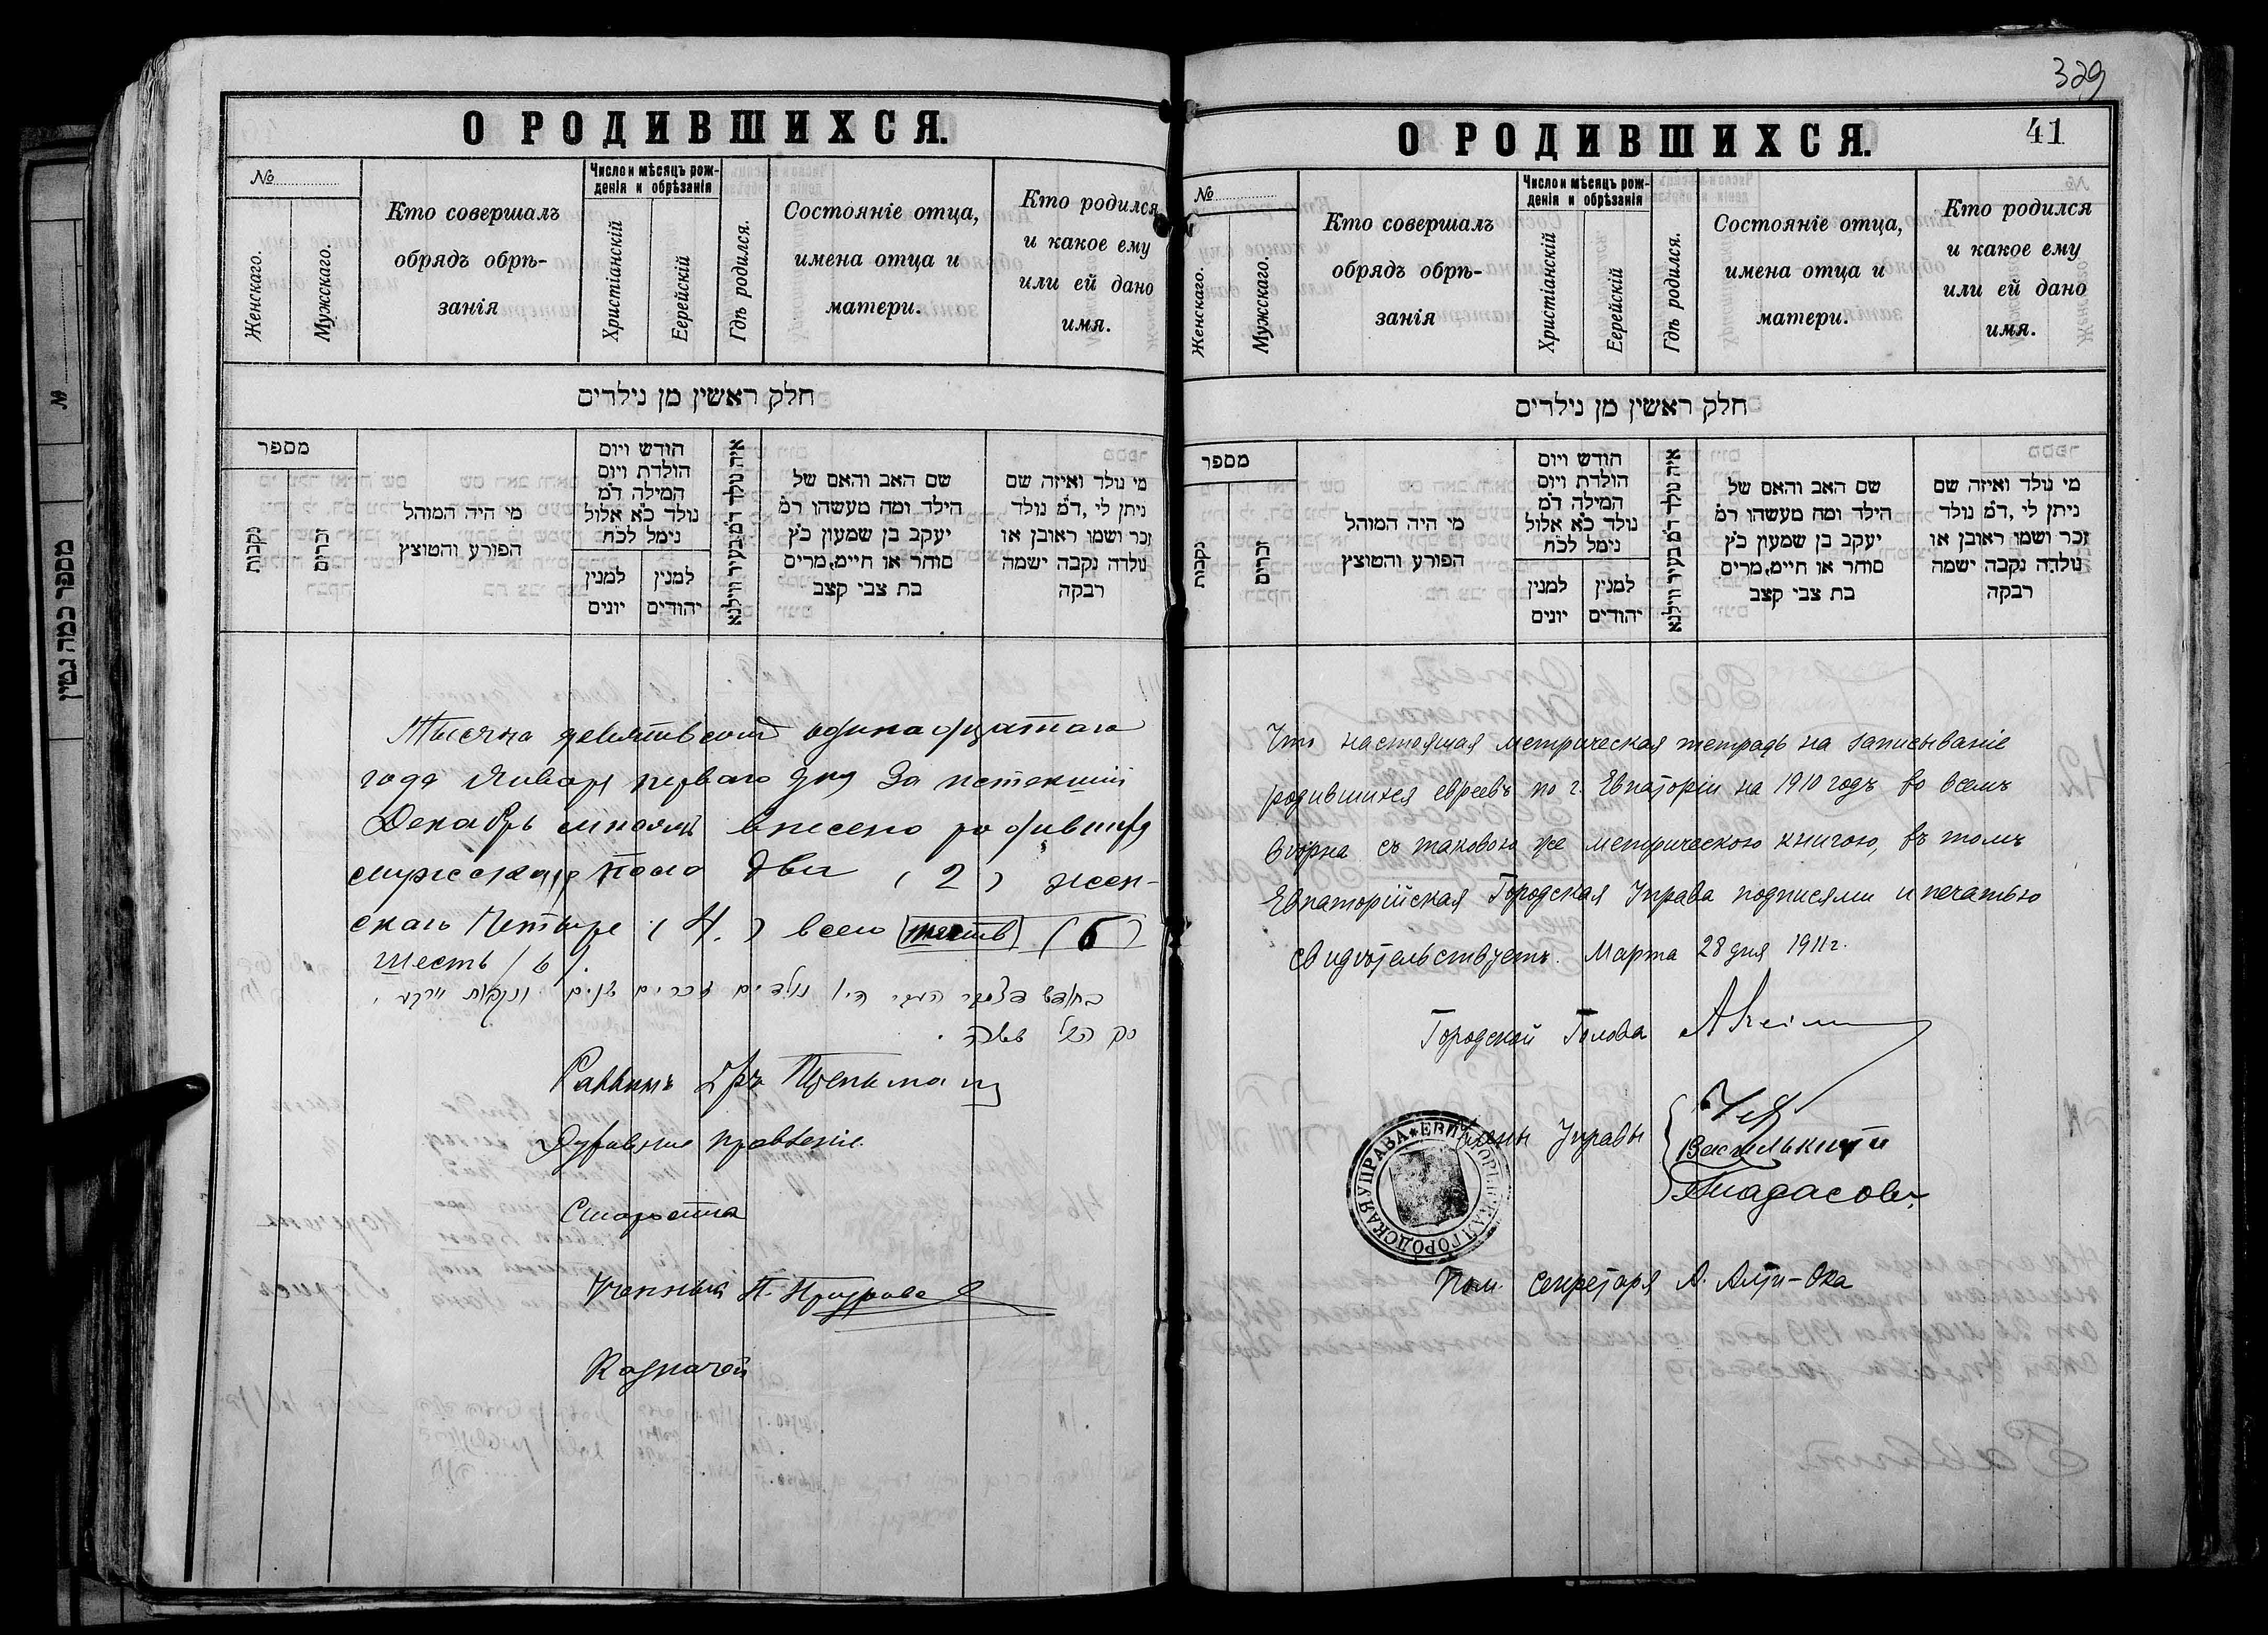 О РОДИВШИХСЯ.
№
Женскаго.
Мужскаго.
Кто совершалъ
обрядъ обрѣ-
занія
Число и мѣсяцъ рож-
денія и обрѣзанія
Христіанскій
Еерейскій
Гдѣ родился.
Состояніе отца,
имена отца и
матери.
Кто родился
и какое ему
или ей дано
имя.
חלק ראשין מן נילדים
מספר
נקבות
זכרים
מי היה המוהל
הפורע והטוצץ
הודש ויום
הולדת ויום
המילה דמ
נולד כא אלול
נימל לכח
למנין
יונים
למנין
יהודים
איה נולד דמ בעיר ווילנא
שם האב והאם של
הילד ומה מעשהו דמ
יעקב בן שמעון כץ
סוחר או חיים, מרים
בת צבי קצב
מי נולד ואיזה שם
ניתן לי, דמ נולד
זכר ושמו ראובן או
נולדה נקבה ישמה
רבקה
Тысяча девятьсотъ одинадцатаго
года Января перваго дня За истекшій
Декабрь мѣсяцъ внесено родившихся
мужскаго пола два (2) жен-
скаго Четыре (4.) всего шесть (6)
шесть (6).
נולדים זכרים שנים ונקבות
Раввинъ Др
Духовное правленіе.
Староста
Ученный
Казначей
329
О РОДИВШИХСЯ.
41
№
Женскаго.
Мужскаго.
Кто совершалъ
обрядъ обрѣ-
занія
Число и мѣсяцъ рож-
денія и обрѣзанія
Христіанскій
Еерейскій
Гдѣ родился.
Состояніе отца,
имена отца и
матери.
Кто родился
и какое ему
или ей дано
имя.
חלק ראשין מן נילדים
מספר
נקבות
זכרים
מי היה המוהל
הפורע והטוצץ
הודש ויום
הולדת ויום
המילה דמ
נולד כא אלול
נימל לכח
למנין
יונים
למנין
יהודים
איה נולד דמ בעיר ווילנא
שם האב והאם של
הילד ומה מעשהו דמ
יעקב בן שמעון כץ
סוחר או חיים, מרים
בת צבי קצב
מי נולד ואיזה שם
ניתן לי, דמ נולד
זכר ושמו ראובן או
נולדה נקבה ישמה
רבקה
Что настоящая метрическая тетрадь на записываніе
родившихся евреевъ по г. Евпаторіи на 1910 годъ во всемъ
вѣрна съ таковою же метрическою книгою, въ томъ
Евпаторійская Городская Управа подписями и печатью
свидѣтельствуетъ. Марта 28 дня 1911 г.
Городской Голова
Члены Управы
ЕВПАТОРІЙСКАЯ ГОРОДСКАЯ УПРАВА
Пом. Секретаря А. Алти-Ока